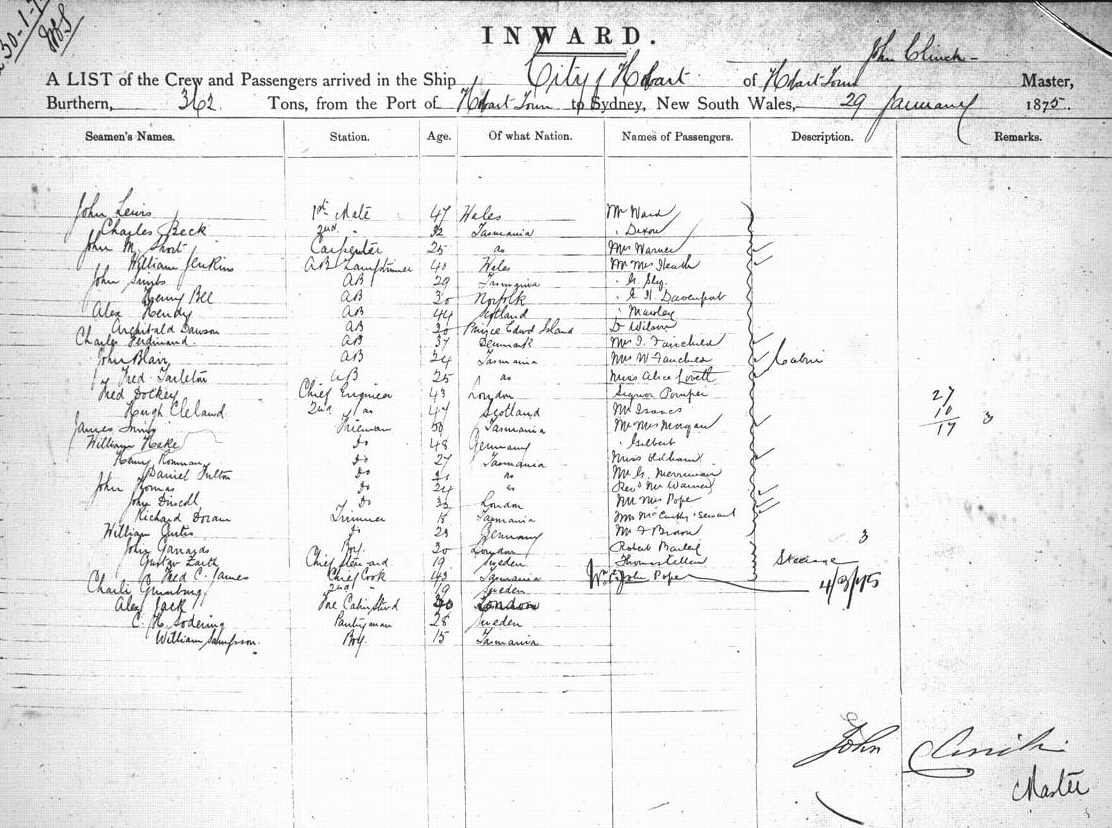 30-1-7
INWARD.
John Clinch
A LIST of the Crew and Passengers arrived in the Ship City of Hobart of Hobart Town Master,
Burthern, 362 Tons, from the Port of Hobart Town to Sydney, New South Wales, 29 January 1875.
Seamen's Names. Station. Age. Of what Nation. Names of Passengers. Description. Remarks.
John Lewis 1st Mate 47 Wales Mr Ward
Charles Beck 2nd " 32 Tasmania " Dixon
John M. Short Carpenter 25 do Mrs Warner
William Jenkins AB Lamptrimmer 40 Wales Mr Mrs Heath
John AB 29 Tasmania
Henry Bell AB 30 Norfolk Davenport
Alex Hendy AB 44 Scotland
Archibald Dawson AB 30 Prince Edwd Island Dr Wilson
Charles Ferdinand AB 37 Denmark Mrs
John Blair AB 24 Tasmania Mrs W Cabin
Fred Tarleton AB 25 do Miss Alice Lovett
Fred Dockey Chief Engineer 43 London Signor 27
Hugh Cleland 2nd do 47 Scotland Mr Isaacs 10 3
James Fireman 50 Tasmania Mr Mrs Morgan 17
William Hake Do 48 Germany " Gilbert
Henry Do 27 Tasmania Miss Oldham
Daniel Fulton Do do Mr G. Merriman
John Thomas Do 24 do Revd Mr Warner
John Driscoll Do London Mr Mrs Pope
Richard Doran Trimmer 18 Tasmania Mrs McCarthy & Servant
William Curtis Do 23 Germany Mr F Brown
John 30 London Robert 3
Gustav Chief Steward 19 Sweden Steerage
Fred C. James Chief Cook 43 Tasmania John Pope
Charli 2nd " 19 Sweden
Alex Jack Fore Cabin Stwd London
C. H. Sodering Pantryman 28 Sweden
William Sampson Boy 15 Tasmania
John Clinch
Master